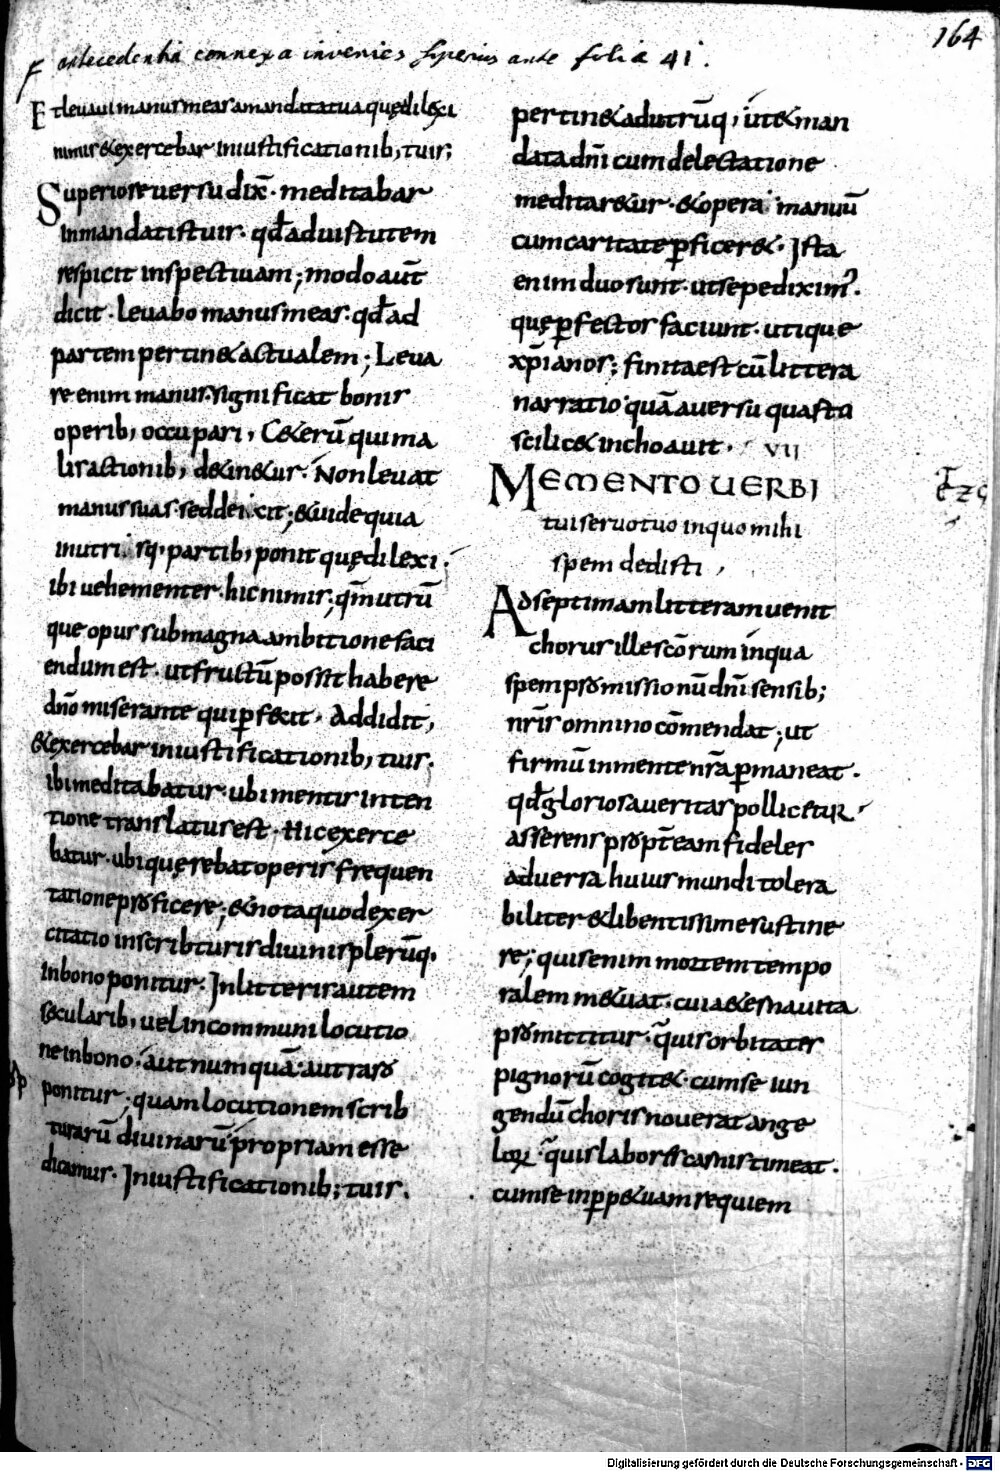 164
antecedentia connexa invenies superius ante folia 41.
Et leuaui manus meas amandata tua quę dilexi
nimis & exercebar iniustificationib; tuis;
Superiore uersu dix̄ · meditabar
inmandatis tuis · qđ aduirtutem
respicit inspectiuam; modo aut̄
dicit · leuabo manus meas · qđ ad
partem pertin& actualem; Leua
re enim manus · significat bonis
operib; occupari, C&erū qui ma
lis actionib; d&in&ur · Non leuat
manus suas · sed deicit; & uide quia
inutrisq; partib; ponit quę dilexi ·
ibi uehementer · hic nimis; qm̄ utrū
que opus submagna ambitione faci
endum est · ut fructū possit habere
dn̄o miserante qui ꝑfecit · Addidit,
& exercebar iniustificationib; tuis ·
ibi meditabatur · ubi mentis inten
tione translatus est · Hic exerce
batur · ubi quęrebat operis frequen
tatione proficere; & nota quod exer
citatio inscribturis diuinis plerūq;
inbono ponitur · In litteris autem
sęcularib; uel incommuni locutio
ne inbono · aut numquā · aut raro
ponitur; quam locutionem scrib
turarū diuinarū propriam esse
dicamus · In iustificationib; tuis ·
pertin& ad utrūq; ut & man
data dn̄i cum delectatione
meditar&ur · & opera manuū
cum caritate ꝑficer& · Ista
enim duo sunt · ut sepe dixim; ·
quę ꝑfectos faciunt · utique
xp̄ianos; finita est cū littera
narratio quā auersu quasta
scilic& inchoauit · VII
MEMENTO UERBI
tui seruo tuo in quo mihi
spem dedisti,
Ad septimam litteram uenit
chorus ille sc̄orum inqua
spem promissionū dn̄i sensib;
nr̄is omnino cōmendat; ut
firmū inmente nr̄a ꝑmaneat ·
qđ gloriosa ueritas pollicetur
asserens propt̄eam fideles
aduersa huius mundi tolera
biliter & libentissime sustine
re; quis enim mortem tempo
ralem m&uat · cui a&erna uita
promittitur · quis orbitates
pignorū cogit& · cum se iun
gendū choris nouerat ange
loꝝ · quis labores carnis timeat ·
cum se in ꝑp&uam requiem
Digitalisierung gefördert durch die Deutsche Forschungsgemeinschaft - DFG